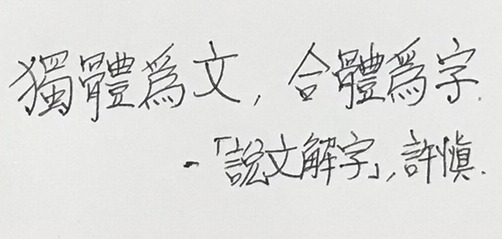 獨體爲文, 合體爲字.
-「說文解字」, 許愼.